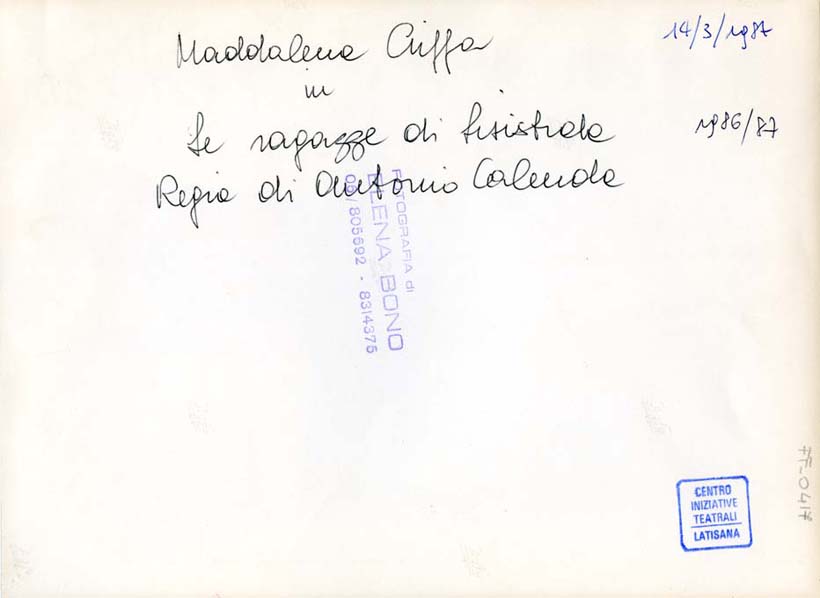 Maddalena Criffa
in
Le ragazze di Lisistrata
Regia di Antonio Calenda
14/3/1987
1986/87
FOTOGRAFIA di
ELENA BONO
06/805692 - 8314375
CENTRO
INIZIATIVE
TEATRALI
LATISANA
FF-0417